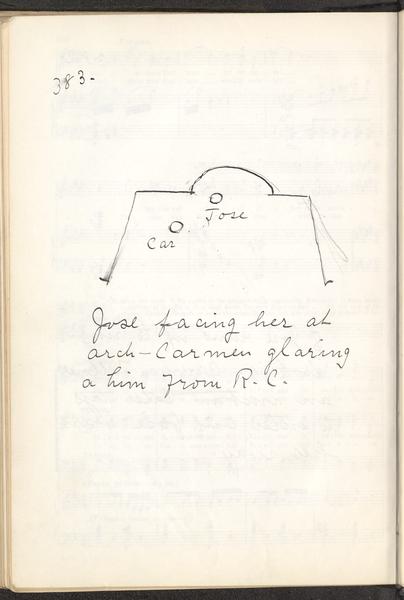 383-
Jose
Car
Jose facing her at
arch-Carmen glaring
a him from R.C.